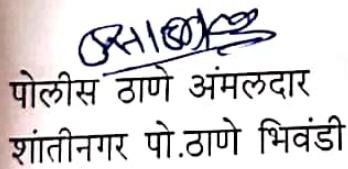 पोलीस ठाणे अंमलदार
शांतीनगर पो.ठाणे भिवंडी